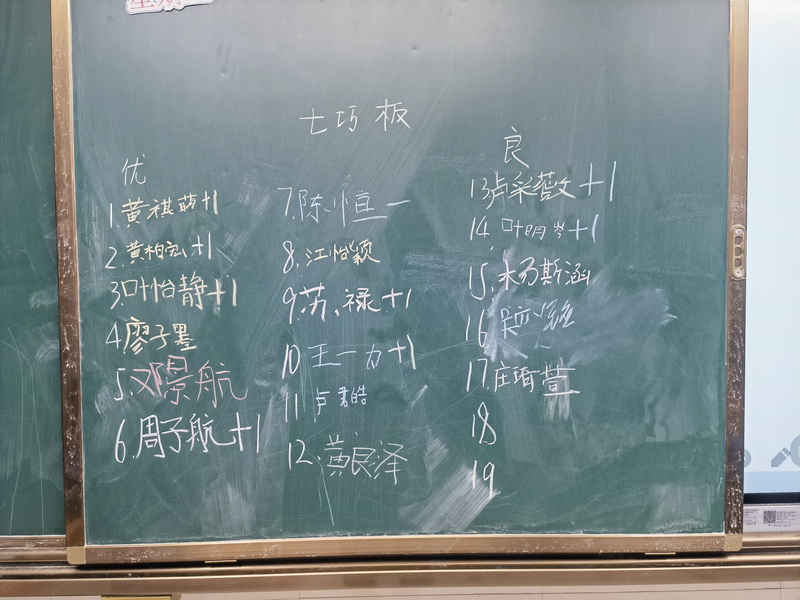 七巧板
优
1.黄祺茹+1
2.黄柏宏+1
3.叶怡静+1
4.廖子墨
5.邓景航
6.周子航+1
7.陈恒一
8.江怡颖
9.苏禄+1
10 王一力+1
11 卢君皓
12.黄民泽
良
13卢采薇+1
14 叶明岑+1
15.杨斯涵
16
17.庄琦萱
18
19